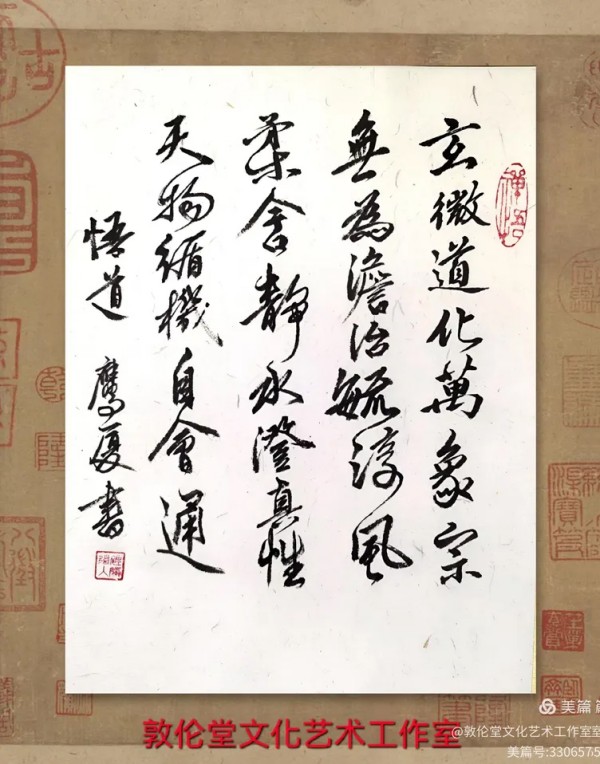 玄微道化萬象宗
無為澹治毓淳風
柔含靜水澄真性
天物循機自會通
悟道 鷹夏書
禪悟
敦伦堂文化艺术工作室
美篇
@敦伦堂文化艺术工作室
美篇号:330657